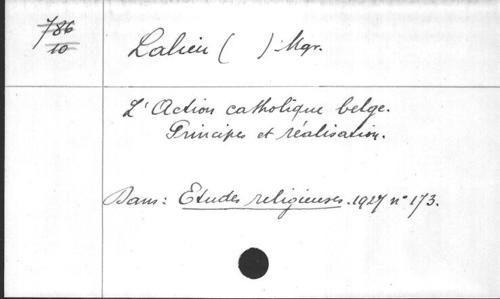 786
10
Lalieu ( ) Mgr.
L'Action catholique belge.
Principes et réalisation.
Dans: Etudes religieuses. 1927 n° 173.